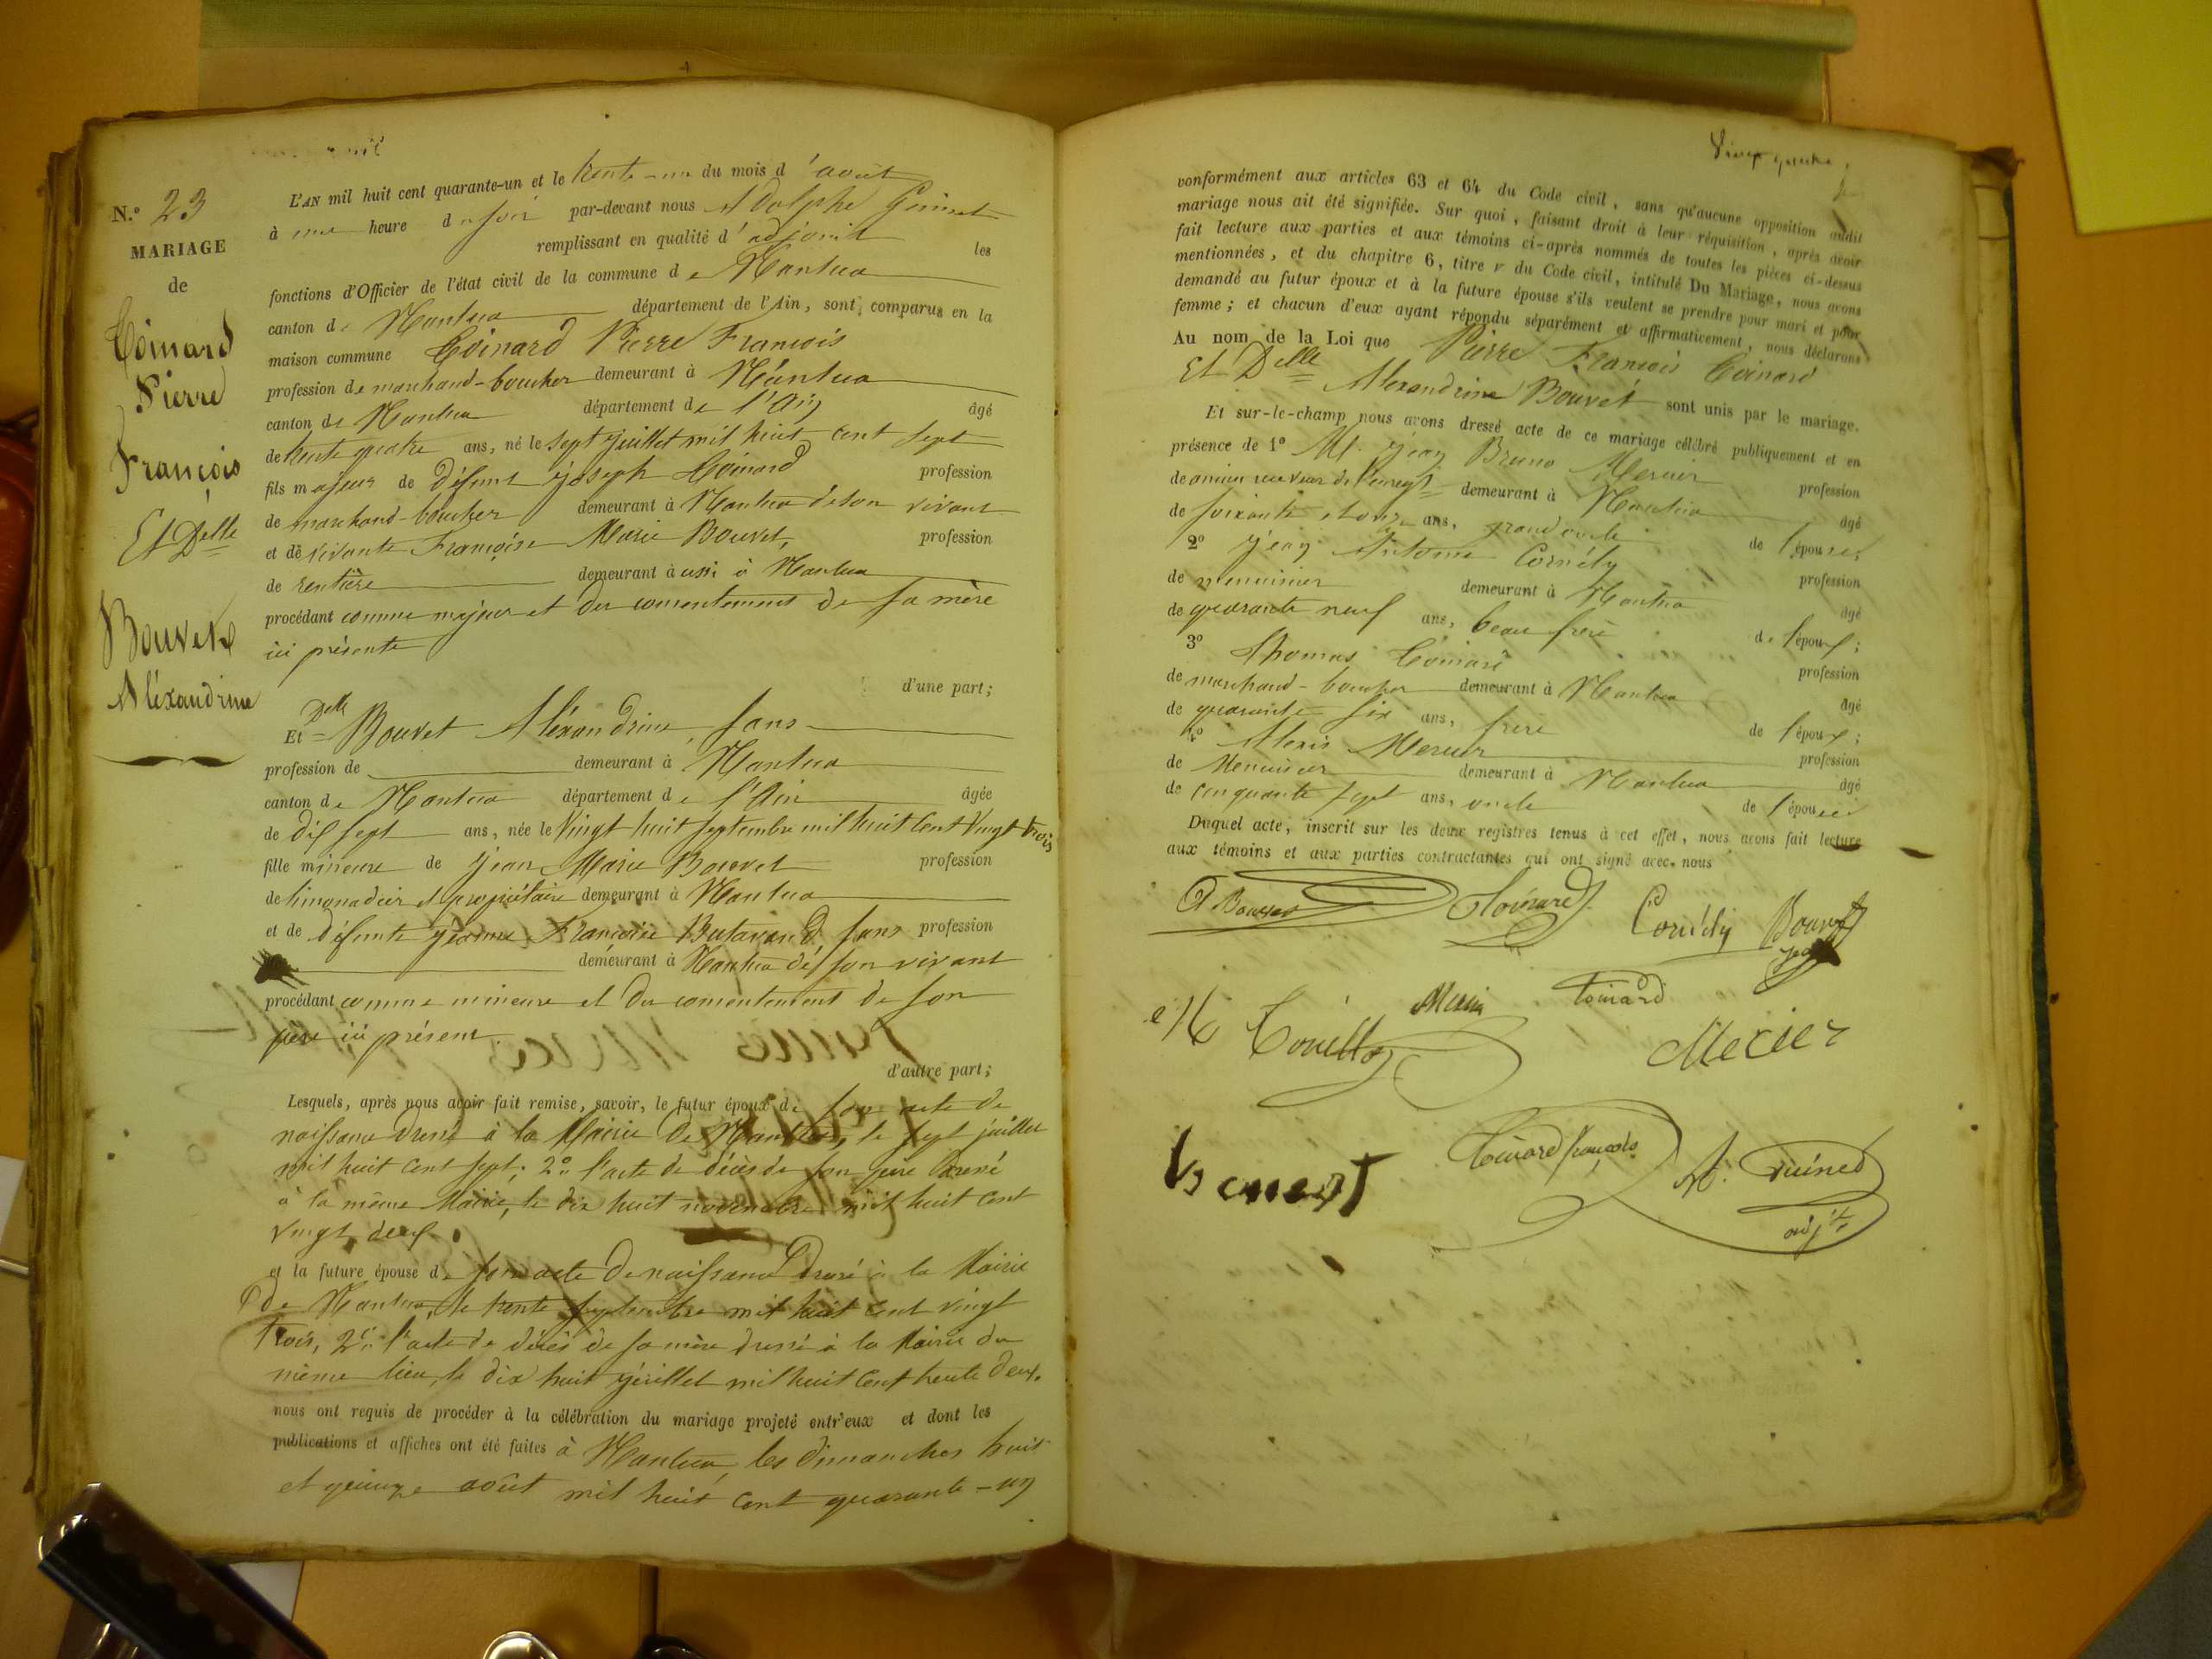 N.º 23
MARIAGE
de
Coinard
Pierre
François
Et Delle
Bouvet
Aléxandrine
L'AN mil huit cent quarante-un et le trente-un du mois d'août
à une heure du soir par-devant nous Adolphe Guinet
remplissant en qualité d'adjoint les
fonctions d'Officier de l'état civil de la commune de Nantua
canton de Nantua département de l'Ain, sont comparus en la
maison commune Coinard Pierre François
profession de marchand-boucher demeurant à Nantua
canton de Nantua département de l'Ain âgé
de trente quatre ans, né le sept juillet mil huit cent sept
fils majeur de défunt Joseph Coinard profession
de marchand-boucher demeurant à Nantua de son vivant
et de vivante Françoise Marie Bouvet, profession
de rentière demeurant à aussi à Nantua
procédant comme majeur et du consentement de sa mère
ici présente
d'une part;
Et Delle Bouvet Aléxandrine, sans
profession de demeurant à Nantua
canton de Nantua département de l'Ain âgée
de dix sept ans, née le Vingt huit septembre mil huit cent Vingt trois
fille mineure de Jean Marie Bouvet profession
de limonadier et propriétaire demeurant à Nantua
et de défunte Jeanne Françoise Butavand, sans profession
demeurant à Nantua de son vivant
procédant comme mineure et du consentement de son
père ici présent.
d'autre part;
Lesquels, après nous avoir fait remise, savoir, le futur époux de son acte de
naissance dressé à la Mairie de Nantua, le sept juillet
mil huit cent sept; 2º l'acte de décès de son père dressé
à la même Mairie, le dix huit novembre mil huit cent
vingt deux.
et la future épouse de son acte de naissance dressé à la Mairie
de Nantua, le trente septembre mil huit cent vingt
trois, 2º l'acte de décès de sa mère dressé à la Mairie du
même lieu, le dix huit juillet mil huit cent trente deux.
nous ont requis de procéder à la célébration du mariage projeté entr'eux et dont les
publications et affiches ont été faites à Nantua, les dimanches huit
et quinze août mil huit cent quarante-un
Vingt quatre
conformément aux articles 63 et 64 du Code civil, sans qu'aucune opposition audit
mariage nous ait été signifiée. Sur quoi, faisant droit à leur réquisition, après avoir
fait lecture aux parties et aux témoins ci-après nommés de toutes les pièces ci-dessus
mentionnées, et du chapitre 6, titre v du Code civil, intitulé Du Mariage, nous avons
demandé au futur époux et à la future épouse s'ils veulent se prendre pour mari et pour
femme; et chacun d'eux ayant répondu séparément et affirmativement, nous déclarons
Au nom de la Loi que Pierre François Coinard
Et Delle Alexandrine Bouvet sont unis par le mariage.
Et sur-le-champ nous avons dressé acte de ce mariage célébré publiquement et en
présence de 1º M. Jean Bruno Mercier profession
de ancien receveur de l'enregt demeurant à Nantua âgé
de soixante et onze ans, grand oncle de l'épouse;
2º Jean Antoine Cornély profession
de menuisier demeurant à Nantua âgé
de quarante neuf ans, beau frère de l'époux;
3º Thomas Coinard profession
de marchand-boucher demeurant à Nantua âgé
de quarante six ans, frère de l'époux;
4º Alexis Mercier profession
de Menuisier demeurant à Nantua âgé
de cinquante sept ans, oncle de l'épouse
Duquel acte, inscrit sur les deux registres tenus à cet effet, nous avons fait lecture
aux témoins et aux parties contractantes qui ont signé avec nous
A Bouvet Coinard Cornély Bouvet
Coinard
Mercier
Bouvet Coinard françois A. Guinet
adjt